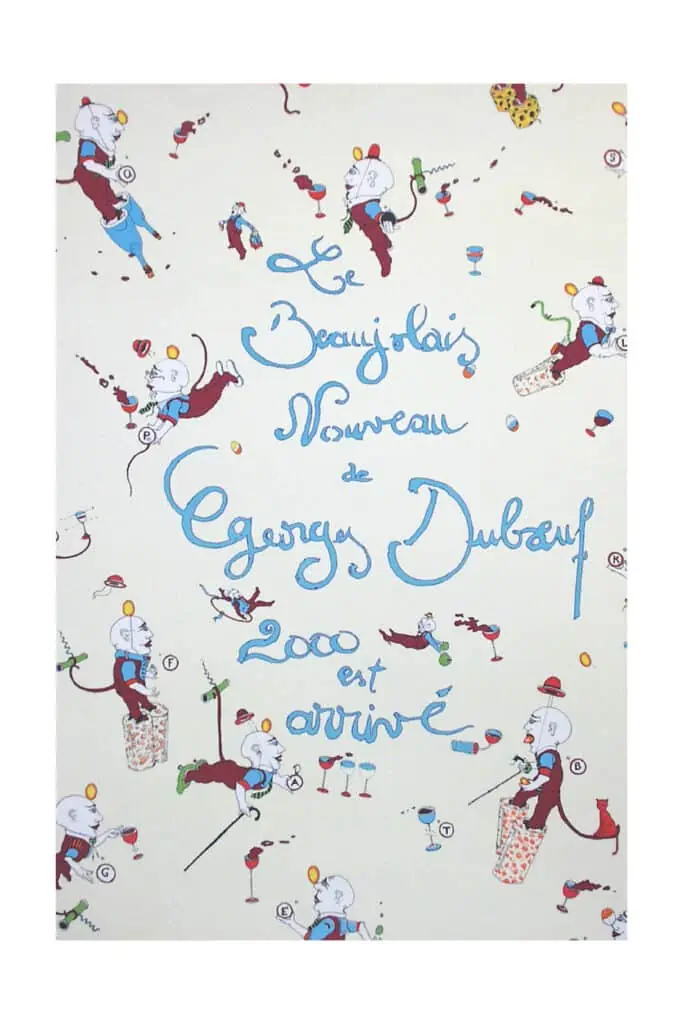 Le
Beaujolais
Nouveau
de
Georges Dubœuf
2000
est
arrivé
O
S
L
P
K
F
A
B
T
G
E